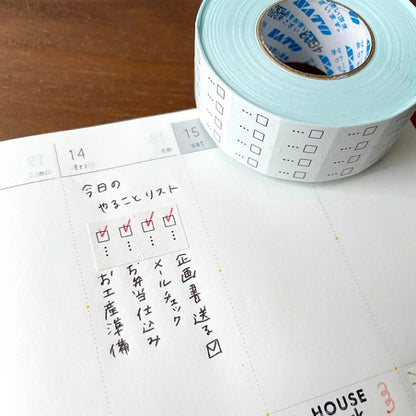 14
fri
大安
15
sat
今日の
やることリスト
企画書送る
メールチェック
お弁当仕込み
お土産準備
SATO
HOUSE